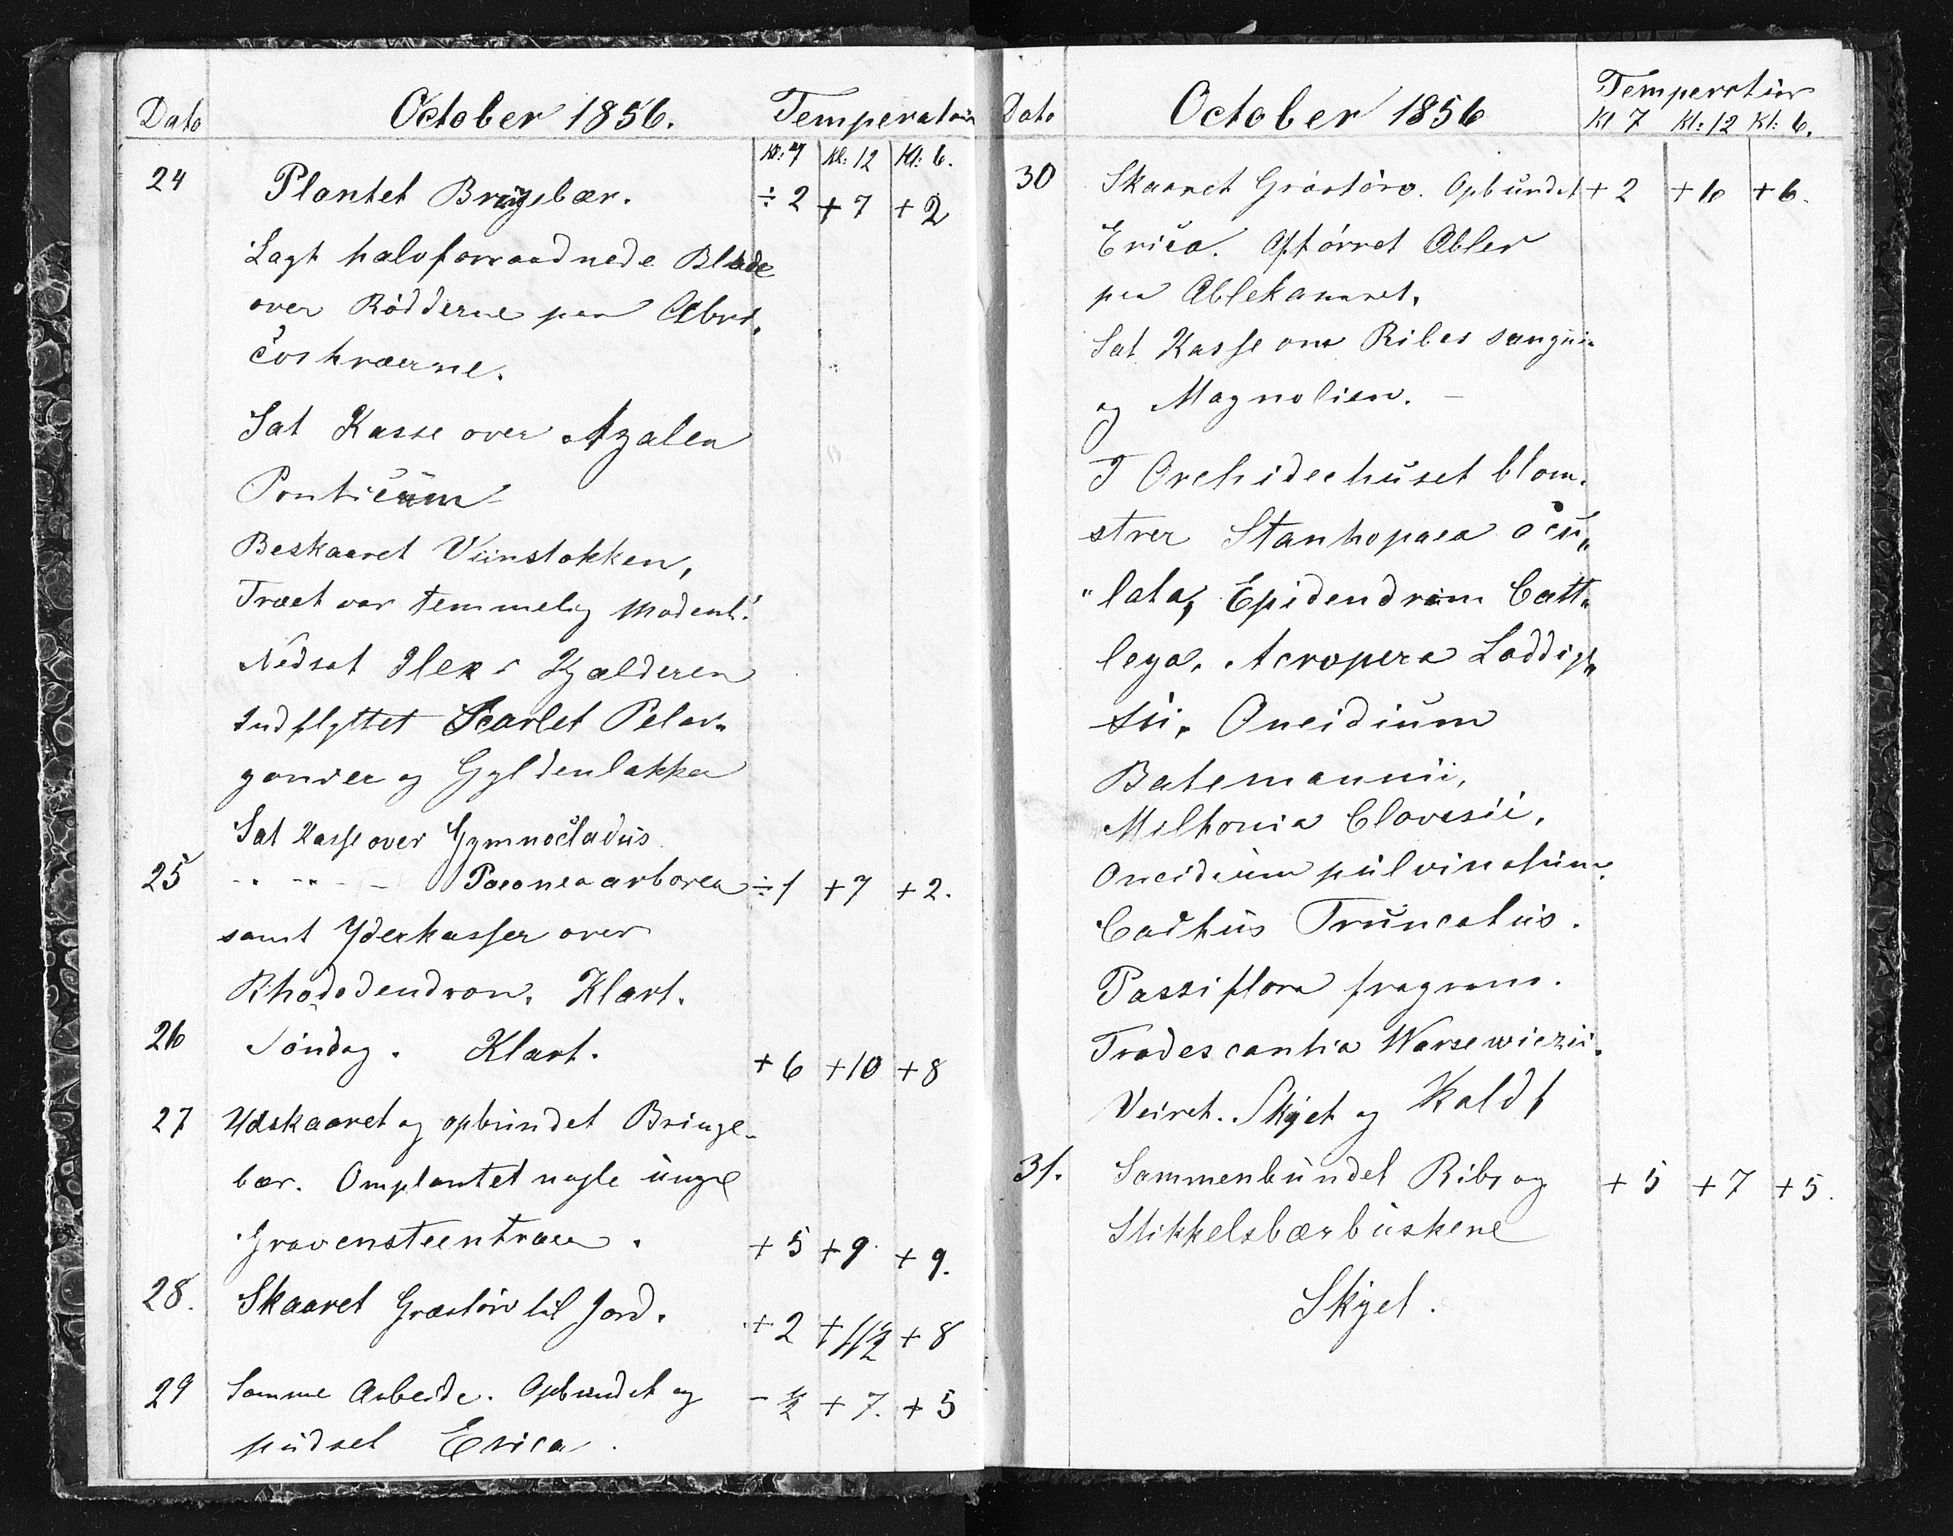 Dato October 1856. Temperatur
Kl: 7 Kl: 12 Kl: 6.
24 Plantet Bringebær. ÷ 2 + 7 + 2
Lagt halvforraadnede Blade
over Rödderne paa Abri„
costræerne.
Sat Kasse over Azalea
Ponticum
Beskaaret Viinstokken,
Træet var temmelig modent!
Nedsat Ilex i Kjælderen
Indflyttet Scarlet Pelar„
gonier og Gyldenlakker
Sat Kasse over Gymnocladus
25 " " " Paeonea arborea ÷ 1 + 7 + 2.
samt Yderkasser over
Rhododendron. Klart.
26 Söndag. Klart. + 6 + 10 + 8
27 Udskaaret og opbundet Bringe„
bær. Omplantet nogle unge
Gravensteentræer. + 5 + 9 + 9.
28. Skaaret Græstörv til Jord. + 2 + 11½ + 8
29 Samme Arbeide. Opbundet og - ½ + 7. + 5
pudset Erica.
Dato October 1856 Temperatur
Kl 7 Kl: 12 Kl: 6.
30 Skaaret Græstörv. Opbundet + 2 + 10 + 6.
Erica. Aftörret Æbler
paa Æblekammret.
Sat Kasse om Ribes sanguin
og Magnolien.
I Orchideehuset blom„
strer Stanhopaea ocu„
„lata, Epidendrum Catt„
leya. Acropera Loddig„
sii. Oncidium
Batemannii,
Miltonia Clovesii,
Oncidium pulvinatum.
Cactus Truncatus.
Passiflora fragrans.
Tradescantia Warsewiczii.
Veiret. Skyet og Koldt
31. Sammenbundet Ribs og + 5 + 7 + 5.
Stikkelsbærbuskene
Skyet.